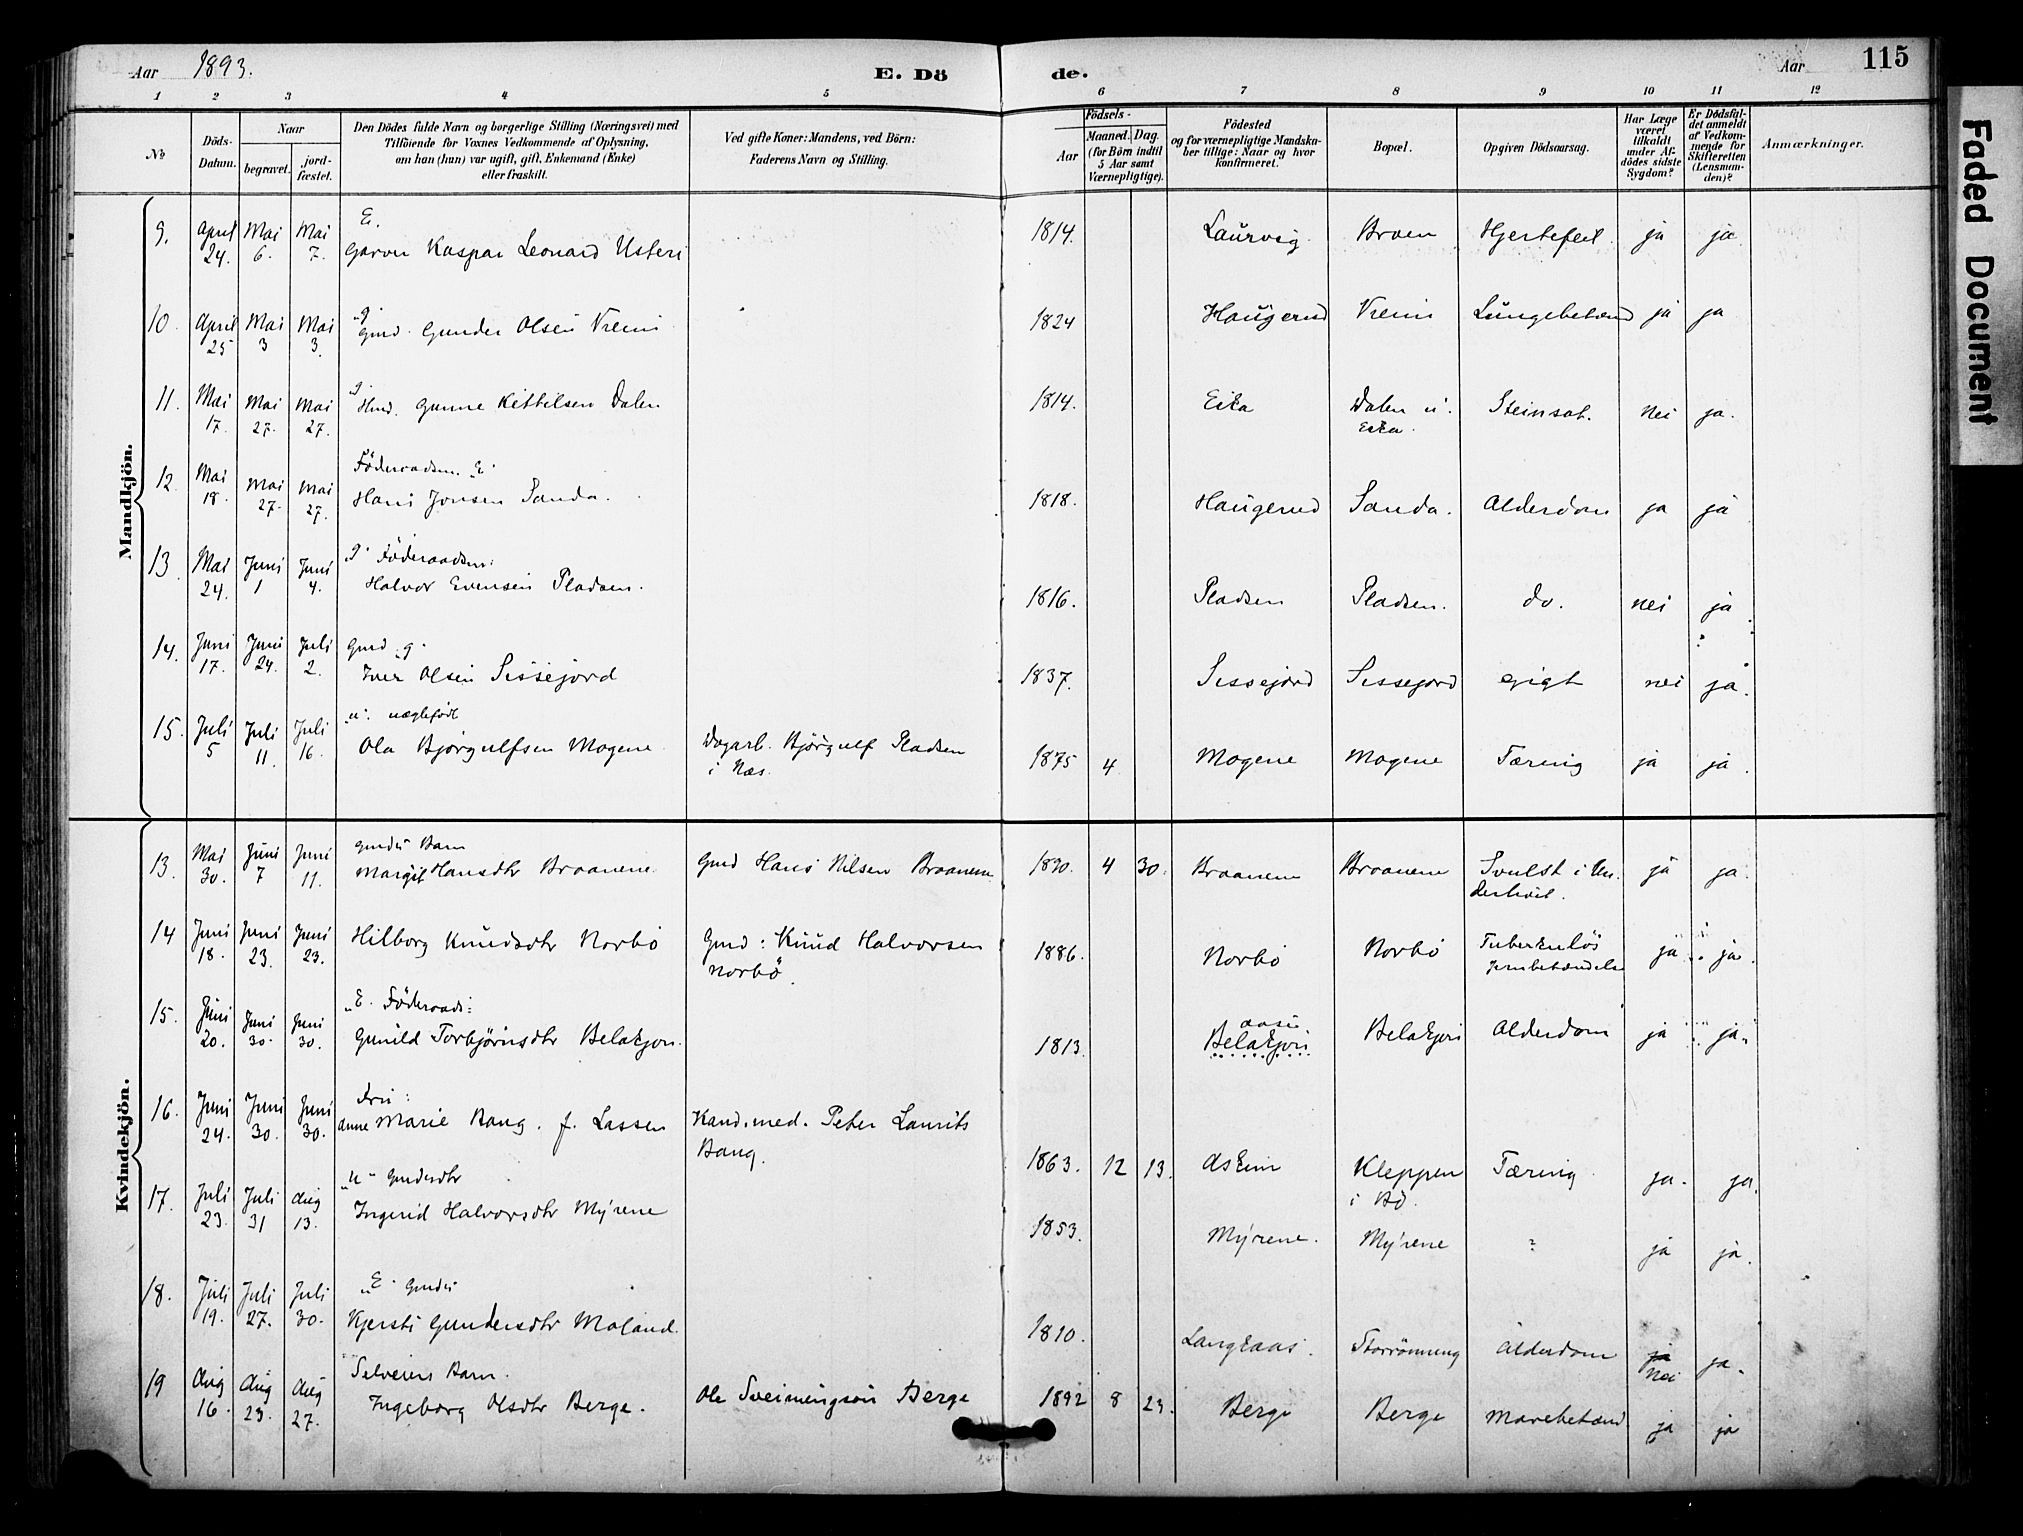 Aar 1893. E. Dö de. Aar 115
1 2 3 4 5 6 7 8 9 10 11 12
No
Döds-Datum.
Naar
begravet.
jord-fæstet.
Den Dödes fulde Navn og borgerlige Stilling (Næringsvei) med
Tilföiende for Voxnes Vedkommende af Oplysning,
om han (hun) var ugift, gift, Enkemand (Enke)
eller fraskilt.
Ved gifte Koner: Mandens, ved Börn:
Faderens Navn og Stilling.
Födsels-
Aar
Maaned. Dag.
(for Börn indtil
5 Aar samt
Værnepligtige).
Födested
og for værnepligtige Mandska-
ber tillige: Naar og hvor
konfirmeret.
Bopæl.
Opgiven Dödsaarsag.
Har Læge
været
tilkaldt
under Af-
dödes sidste
Sygdom?
Er Dödsfal-
det anmeldt
af Vedkom-
mende for
Skifteretten
(Lensman-
den)?
Anmærkninger.
Faded Document
Mandkjön.
E.
9. April 24. Mai 6. Mai 7. Garver Kaspar Leonard Usteri 1814. Laurvig. Broen Hjertefeil. ja ja
"g"
10. April 25 Mai 3 Mai 3. Gmd. Gunder Olsen Vreim 1824 Haugerud Vreim Lungebetænd ja ja
"g"
11. Mai 17. Mai 27. Mai 27. Hmd. Gunne Kittilsen Dalen 1814. Eika Dalen u. Eika. Steinsot. nei ja.
Föderaadsm. "E"
12. Mai 18. Mai 27. Mai 27. Hans Jonsen Sanda. 1818. Haugerud Sanda. Alderdom ja ja
"g" Föderaadsm:
13. Mai 24. Juni 1 Juni 4. Halvor Evensen Pladsen. 1816. Pladsen Pladsen. do. nei ja
Gmd "g"
14. Juni 17. Juni 24. Juli 2. Iver Olsen Sissejord 1837. Sissejord Sissejord gigt nei ja.
"u" uægtefödt
15. Juli 5 Juli 11. Juli 16. Ola Bjørgulfsen Mogene. Dagarb. Bjørgulf Pladsen
i Næs. 1875 4 Mogene Mogene Tæring ja ja.
Kvindekjön.
Gmds Barn
13. Mai 30. Juni 7 Juni 11. Margit Hansdtr Braanene. Gmd Hans Nilsen Braanene 1890. 4 30. Braanene Braanene Svulst i Un-
derlivet. ja ja
14 Juni 18. Juni 23. Juni 23. Hilborg Knudsdtr Norbö Gmd: Knud Halvorsen
Norbö. 1886. Norbö Norbö Tuberkuløs
ja ja.
"E" Föderaads:
15. Juni 20. Juni 30. Juni 30. Gunild Torbjørnsdtr Belakjon. 1813. Belakjon Belakjon Alderdom ja ja
Fru:
16. Juni 24. Juni 30. Juni 30. Anne Marie Bang. f. Lassen Kand. med. Peter Laurits
Bang. 1863. 12 13. Askim Kleppen
i Bø. Tæring. ja. ja.
"u" Gmdsdtr
17. Juli 23. Juli 31 Aug 13. Ingerid Halvorsdtr Myrene 1853. Myrene. Myrene ? ja ja.
"E" Gmds
18. Juli 19. Juli 27. Juli 30. Kjersti Gundersdtr Moland. 1810. Langkaas. Storrönning Alderdom ja nei ja.
Selveiers Barn.
19 Aug 16. Aug 23. Aug 27. Ingeborg Olsdtr Berge. Ole Sveinungsen Berge 1892 8 23. Berge Berge Mavebetænd ja ja